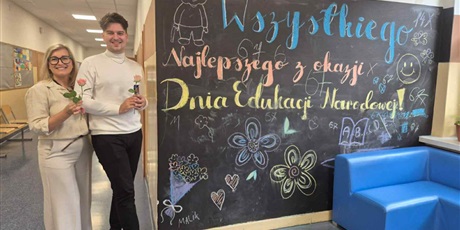 Wszystkiego
Najlepszego z okazji
Dnia Edukacji Narodowej!